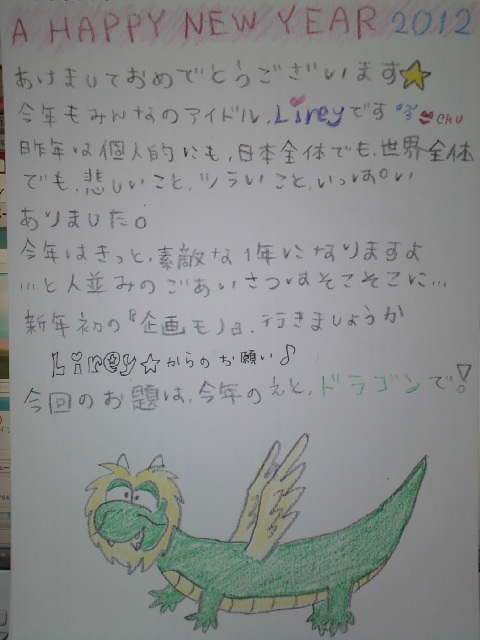 A HAPPY NEW YEAR 2012
あけましておめでとうございます☆
今年もみんなのアイドル、Lireyです chu
昨年は個人的にも、日本全体でも、世界全体
でも、悲しいこと、ツライこと、いっぱい
ありました。
今年はきっと、素敵な1年になりますよ
…と人並みのごあいさつはそこそこに…
新年初の『企画モノ』、行きましょうか
Lirey☆からのお願い♪
今回のお題は、今年のえと、ドラゴンで!